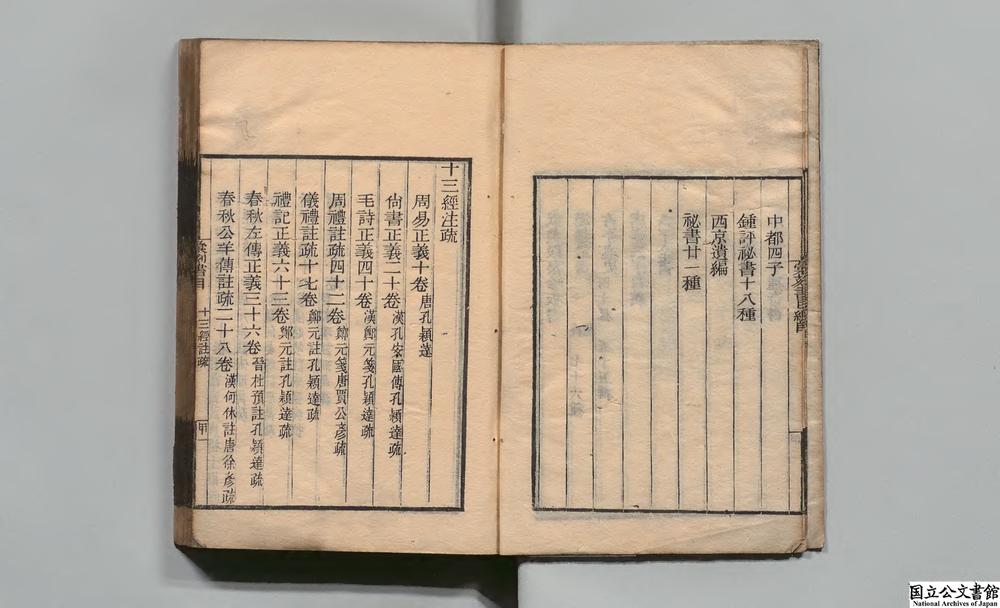 中都四子
鍾評祕書十八種
西京遺編
祕書廿一種
彙刻書目
十三經注疏
周易正義十卷 唐孔穎達
尙書正義二十卷 漢孔安國傳孔穎達疏
毛詩正義四十卷 漢鄭元箋孔穎達疏
周禮註疏四十二卷 鄭元箋唐賈公彥疏
儀禮註疏十七卷 鄭元註孔穎達疏
禮記正義六十三卷 鄭元註孔穎達疏
春秋左傳正義三十六卷 晉杜預註孔穎達疏
春秋公羊傳註疏二十八卷 漢何休註唐徐彥疏
彙刻書目 十三經註疏 甲一
国立公文書館
National Archives of Japan